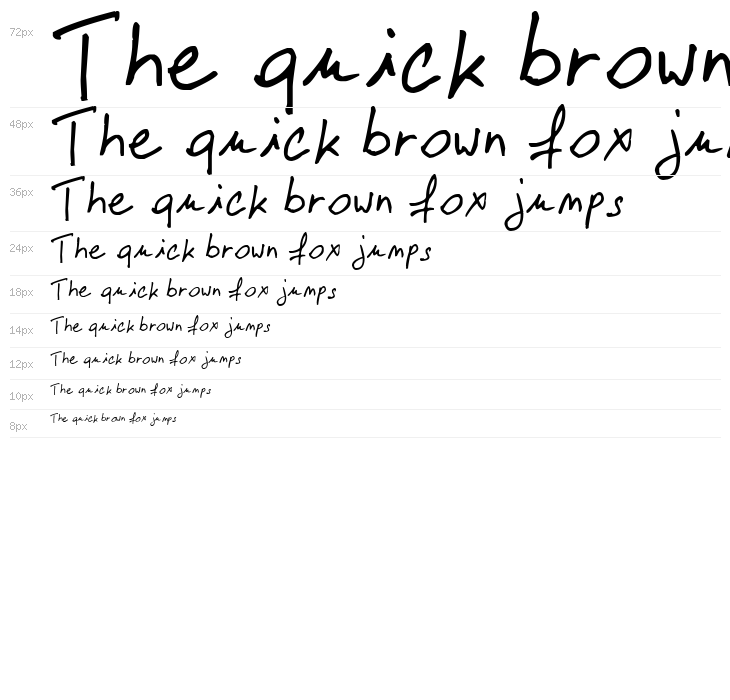 72px The quick brown
48px The quick brown fox ju
36px The quick brown fox jumps
24px The quick brown fox jumps
18px The quick brown fox jumps
14px The quick brown fox jumps
12px The quick brown fox jumps
10px The quick brown fox jumps
8px The quick brown fox jumps